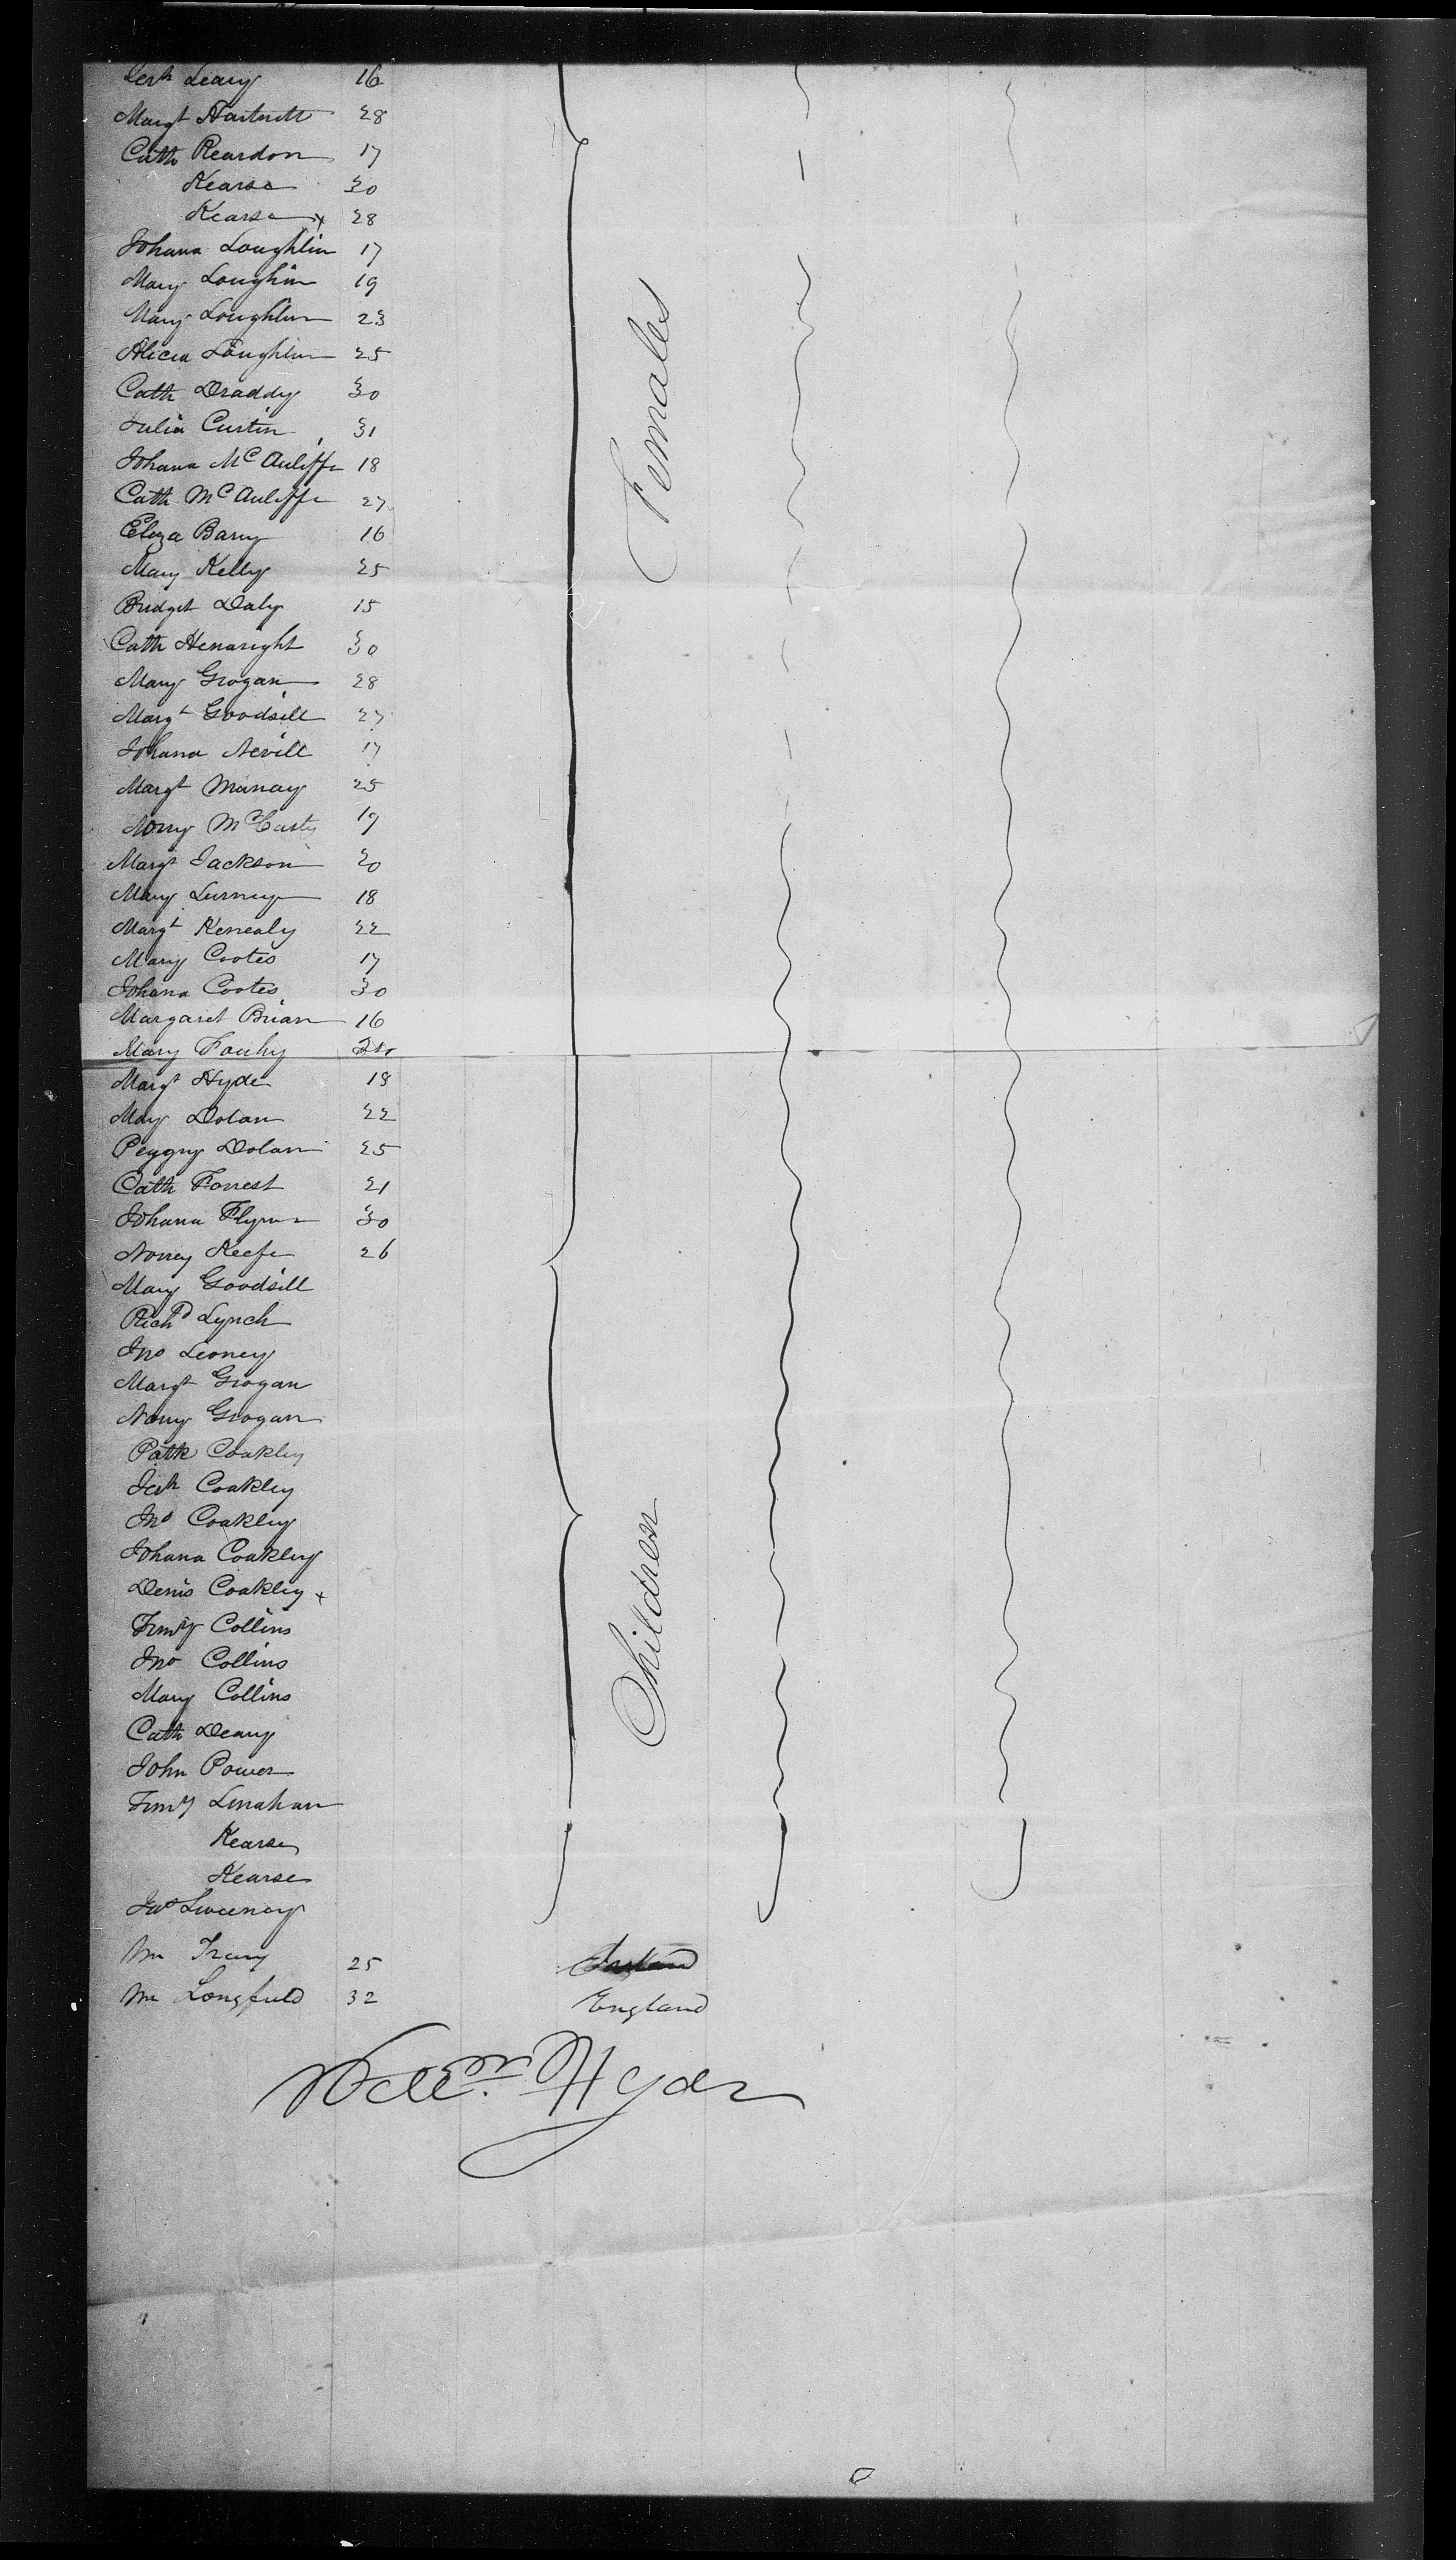 Jerh Leary 16
Margt Hartnett 28
Cath Reardon 17
Kearse 30
Kearse x 28
Johana Loughlin 17
Mary Loughlin 19
Mary Loughlin 23
Alicia Loughlin 25
Cath Draddy 30
Julia Curtin 31
Johana McAuliffe 18
Cath McAuliffe 27
Eliza Barry 16
Mary Kelly 25
Bridget Daly 15
Cath Henaright 30
Mary Grogan 28
Margt Goodsill 27
Johana Nevill 17
Margt 25
Norry McCarty 19
Margt Jackson 20
Mary 18
Margt Kenealy 22
Mary Cootes 17
Johana Cootes 30
Margaret Brian 16
Mary Fouhy
Margt Hyde 18
Mary Dolan 22
Peggy Dolan 25
Cath Forrest 21
Johana Flynn 30
Norrey Keefe 26
Females
Mary Goodsill
Richd Lynch
Jno Leoney
Margt Grogan
Norry Grogan
Patk Coakley
Jerh Coakley
Jno Coakley
Johana Coakley
Denis Coakley x
Timy Collins
Jno Collins
Mary Collins
Cath Deary
John Power
Timy Linahan
Kearse
Kearse
Jno Sweeney
Children
Mr 25
Mr Longfield 32 England
Willm. Hyde